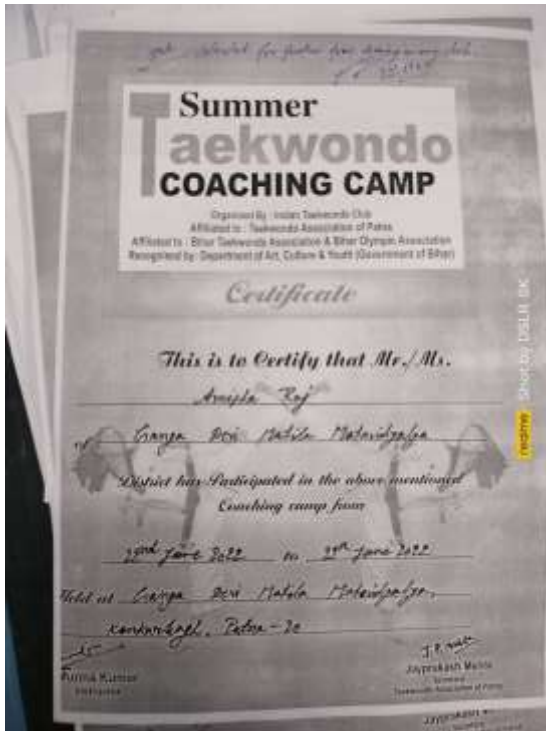 Summer
Taekwondo
COACHING CAMP
Organised By : Indian Taekwondo Club
Affiliated to : Taekwondo Association of Patna
Affiliated to : Bihar Taekwondo Association & Bihar Olympic Association
Recognised by: Department of Art, Culture & Youth (Government of Bihar)
Certificate
This is to Certify that Mr./Ms.
Raj
of Ganga Devi Mahila Mahavidyalya
District has Participated in the above mentioned
Coaching camp from
22nd June 2022 to 29th June 2022
Held at Ganga Devi Mahila Mahavidyalya,
Kankarbagh, Patna-20
Kumar
J.P. Mehta
Jayprakash Mehta
Secretary
Taekwondo Association of Patna
realme Shot by DSLR_GK